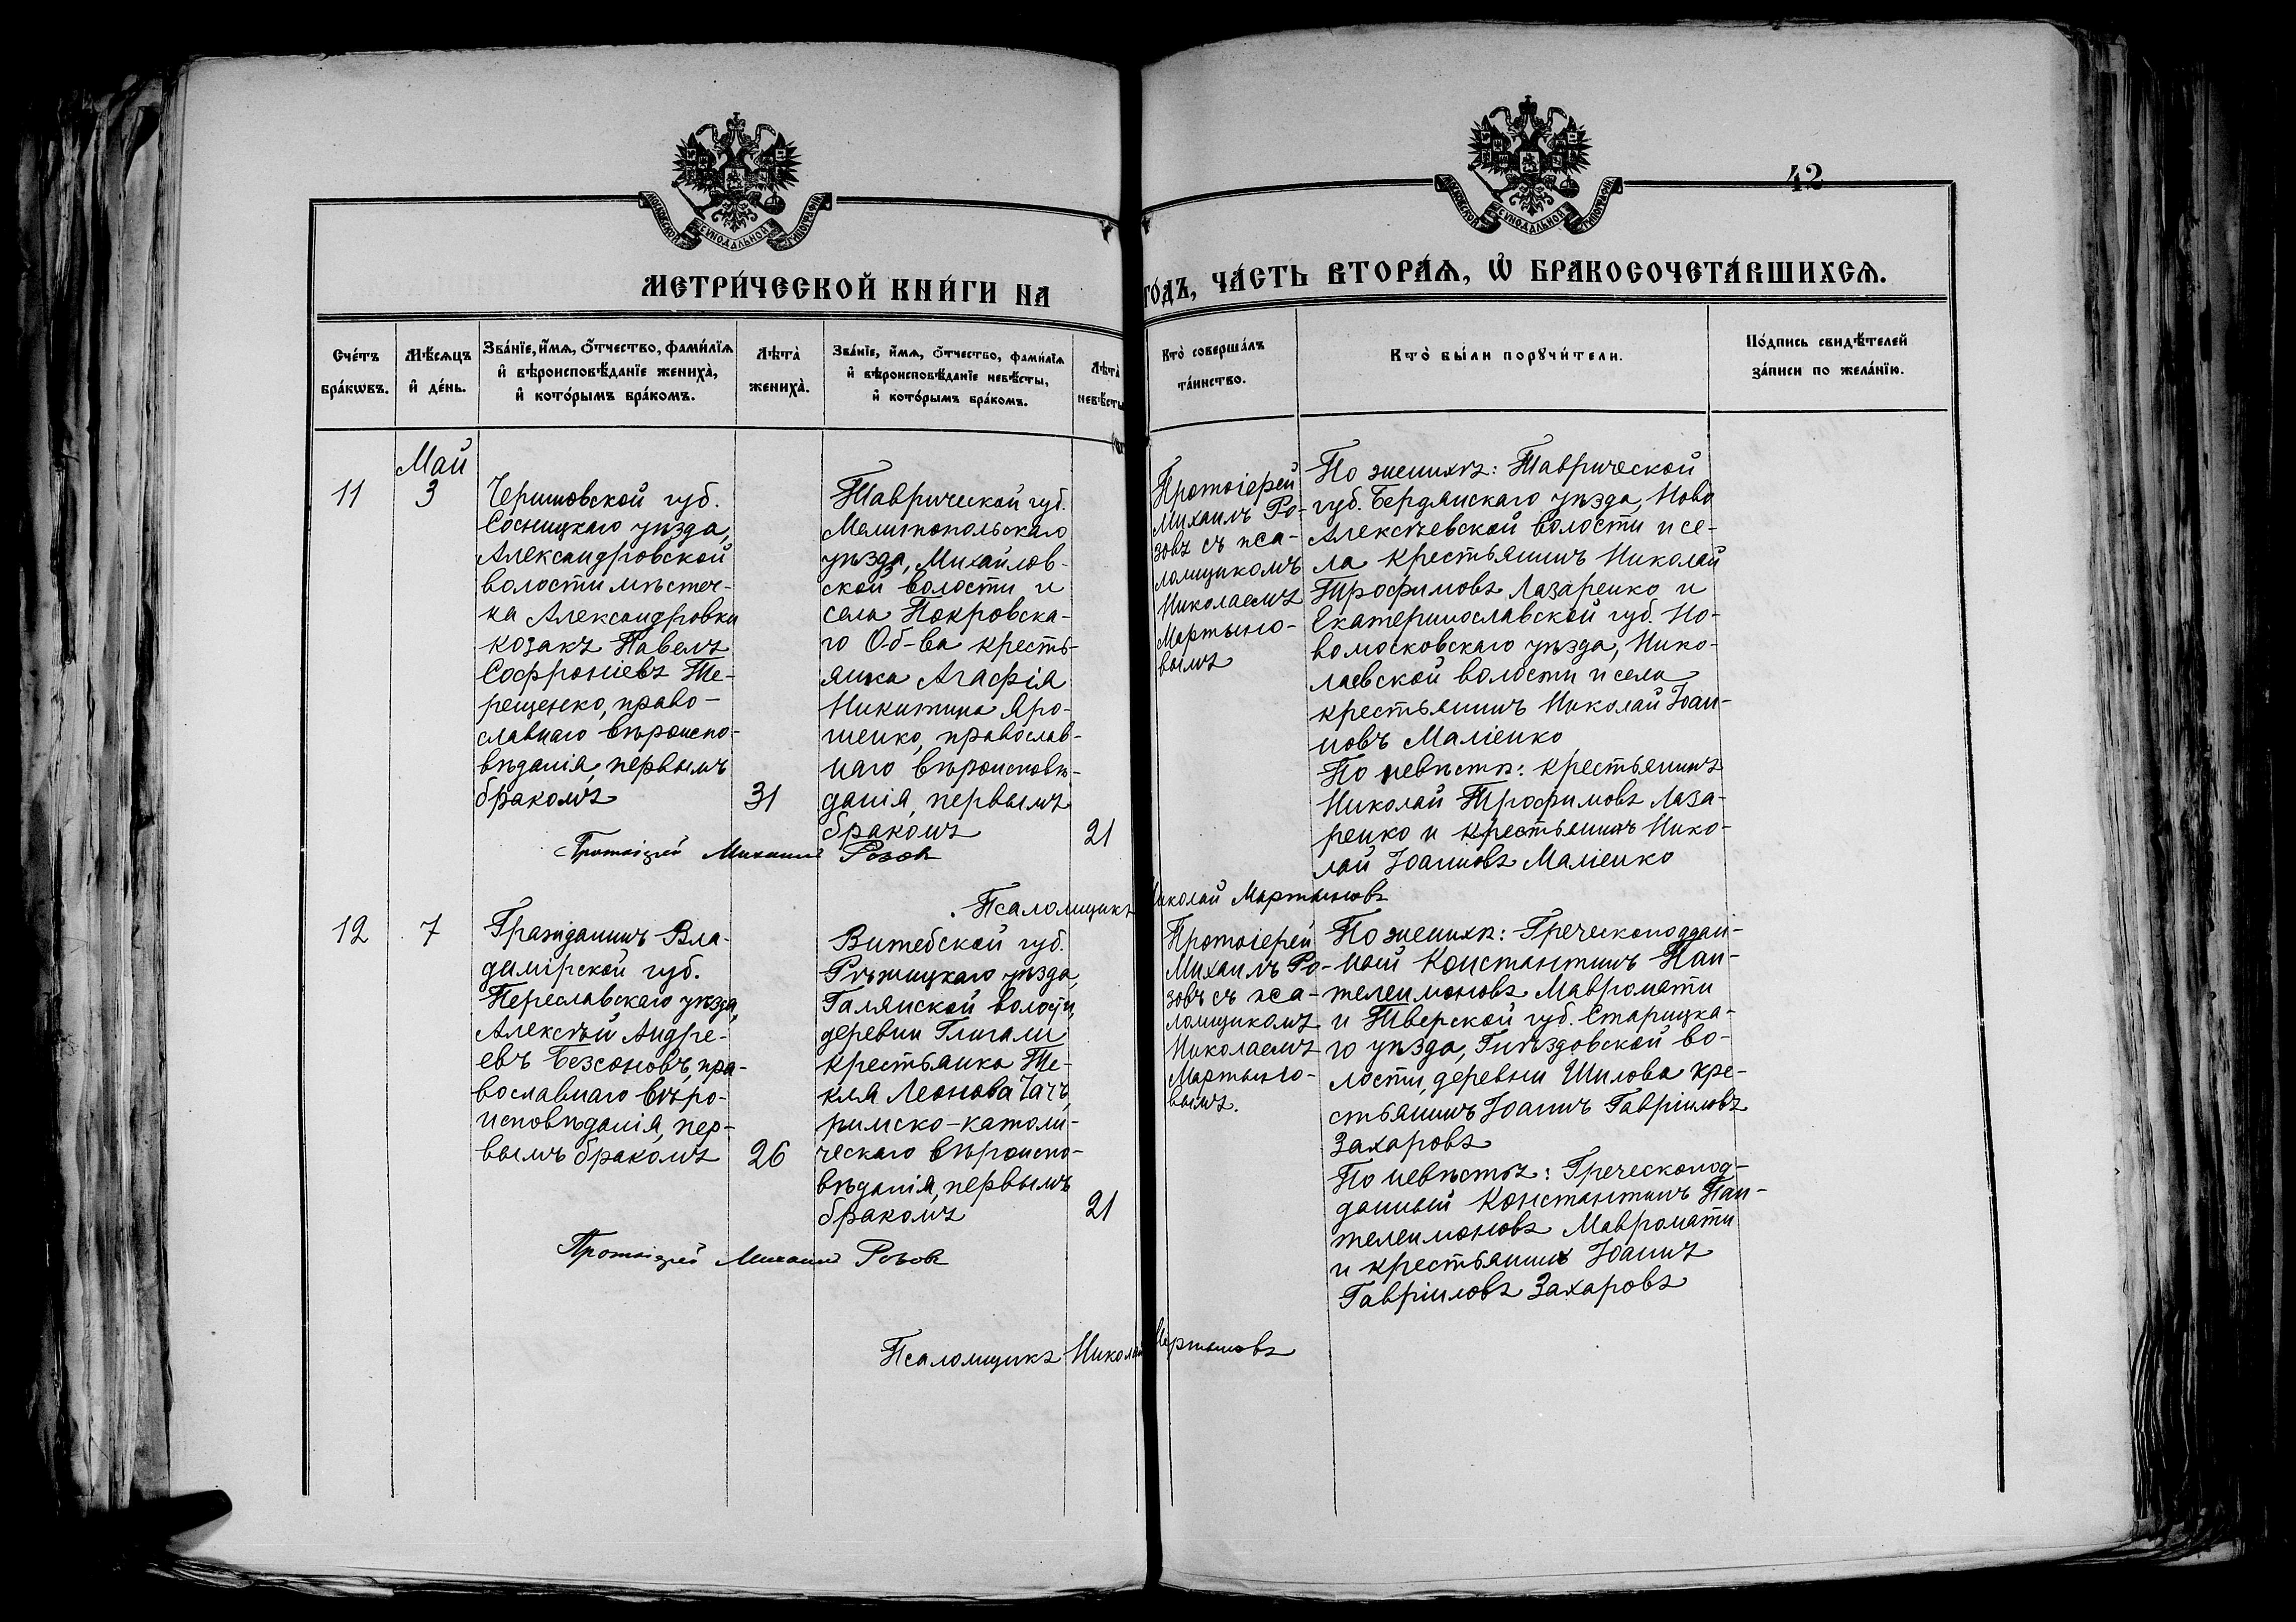 42
МОСКОВСКОЙ СѴНОДАЛЬНОЙ ТИПОГРАФІИ
МОСКОВСКОЙ СѴНОДАЛЬНОЙ ТИПОГРАФІИ
МЕТРИ́ЧЕСКОЙ КНИ́ГИ НА
ГО́ДЪ, ЧА́СТЬ ВТОРА́Ѧ, Ѽ БРАКОСОЧЕТА́ВШИХСѦ.
Сче́тъ
бра́кѡвъ.
Мѣ́сѧцъ
и҆ де́нь.
Зва́нїе, и҆́мѧ, ѻ҆́тчество, фами́лїѧ
и҆ вѣроисповѣ́данїе жениха̀,
и҆ кото́рымъ бра́комъ.
Лѣ́та̀
жениха̀.
Зва́нїе, и҆́мѧ, ѻ҆́тчество, фами́лїѧ
и҆ вѣроисповѣ́данїе невѣ́сты,
и҆ кото́рымъ бра́комъ.
Лѣ́та̀
невѣ́сты
Кто̀ соверша́лъ
та́инство.
Кто̀ бы́ли порꙋчи́тели.
По́дпись свидѣ́телей
за́писи по жела́нїю.
11
Май
3
Черниговской губ.
Сосницкаго уѣзда,
Александровской
волости мѣстеч-
ка Александровки
козакъ Павелъ
Софроніевъ Те-
рещенко, право-
славнаго вѣроиспо-
вѣданія, первымъ
бракомъ
31
Таврической губ.
Мелитопольскаго
уѣзда, Михайлов-
ской волости и
села Покровска-
го Об-ва кресть-
янка Агафія
Никитина Яро-
шенко, православ-
наго вѣроисповѣ-
данія, первымъ
бракомъ
21
Протоіерей
Михаилъ Ро-
зовъ съ пса-
ломщикомъ
Николаемъ
Мартыно-
вымъ
По женихѣ: Таврической
губ. Бердянскаго уѣзда, Ново
Алексѣевской волости и се-
ла крестьянинъ Николай
Трофимовъ Лазаренко и
Екатеринославской губ. Но-
вомосковскаго уѣзда, Нико-
лаевской волости и села
крестьянинъ Николай Іоан-
новъ Маліенко
По невѣстѣ: крестьянинъ
Николай Трофимовъ Лаза-
ренко и крестьянинъ Нико-
лай Іоанновъ Маліенко
Протоіерей Михаилъ Розовъ
Псаломщикъ Николай Мартыновъ
12
7
Гражданинъ Вла-
димірской губ.
Переславскаго уѣзда,
Алексѣй Андре-
евъ Безсоновъ, пра-
вославнаго вѣро-
исповѣданія, пер-
вымъ бракомъ
26
Витебской губ.
Рѣжицкаго уѣзда,
Галянской волости,
деревни Глигали
крестьянка Те-
кля Леонова Чачъ,
римско-католи-
ческаго вѣроиспо-
вѣданія, первымъ
бракомъ
21
Протоіерей
Михаилъ Ро-
зовъ съ пса-
ломщикомъ
Николаемъ
Мартыно-
вымъ.
По женихѣ: Греческоподдан-
ный Константинъ Пан-
телеимоновъ Мавромати
и Тверской губ. Старицка-
го уѣзда, Гнѣздовской во-
лости, деревни Шилова кре-
стьянинъ Іоаннъ Гавріиловъ
Захаровъ
По невѣстѣ: Греческопод-
данный Константинъ Пан-
телеимоновъ Мавромати
и крестьянинъ Іоаннъ
Гавріиловъ Захаровъ
Протоіерей Михаилъ Розовъ
Псаломщикъ Николай Мартыновъ